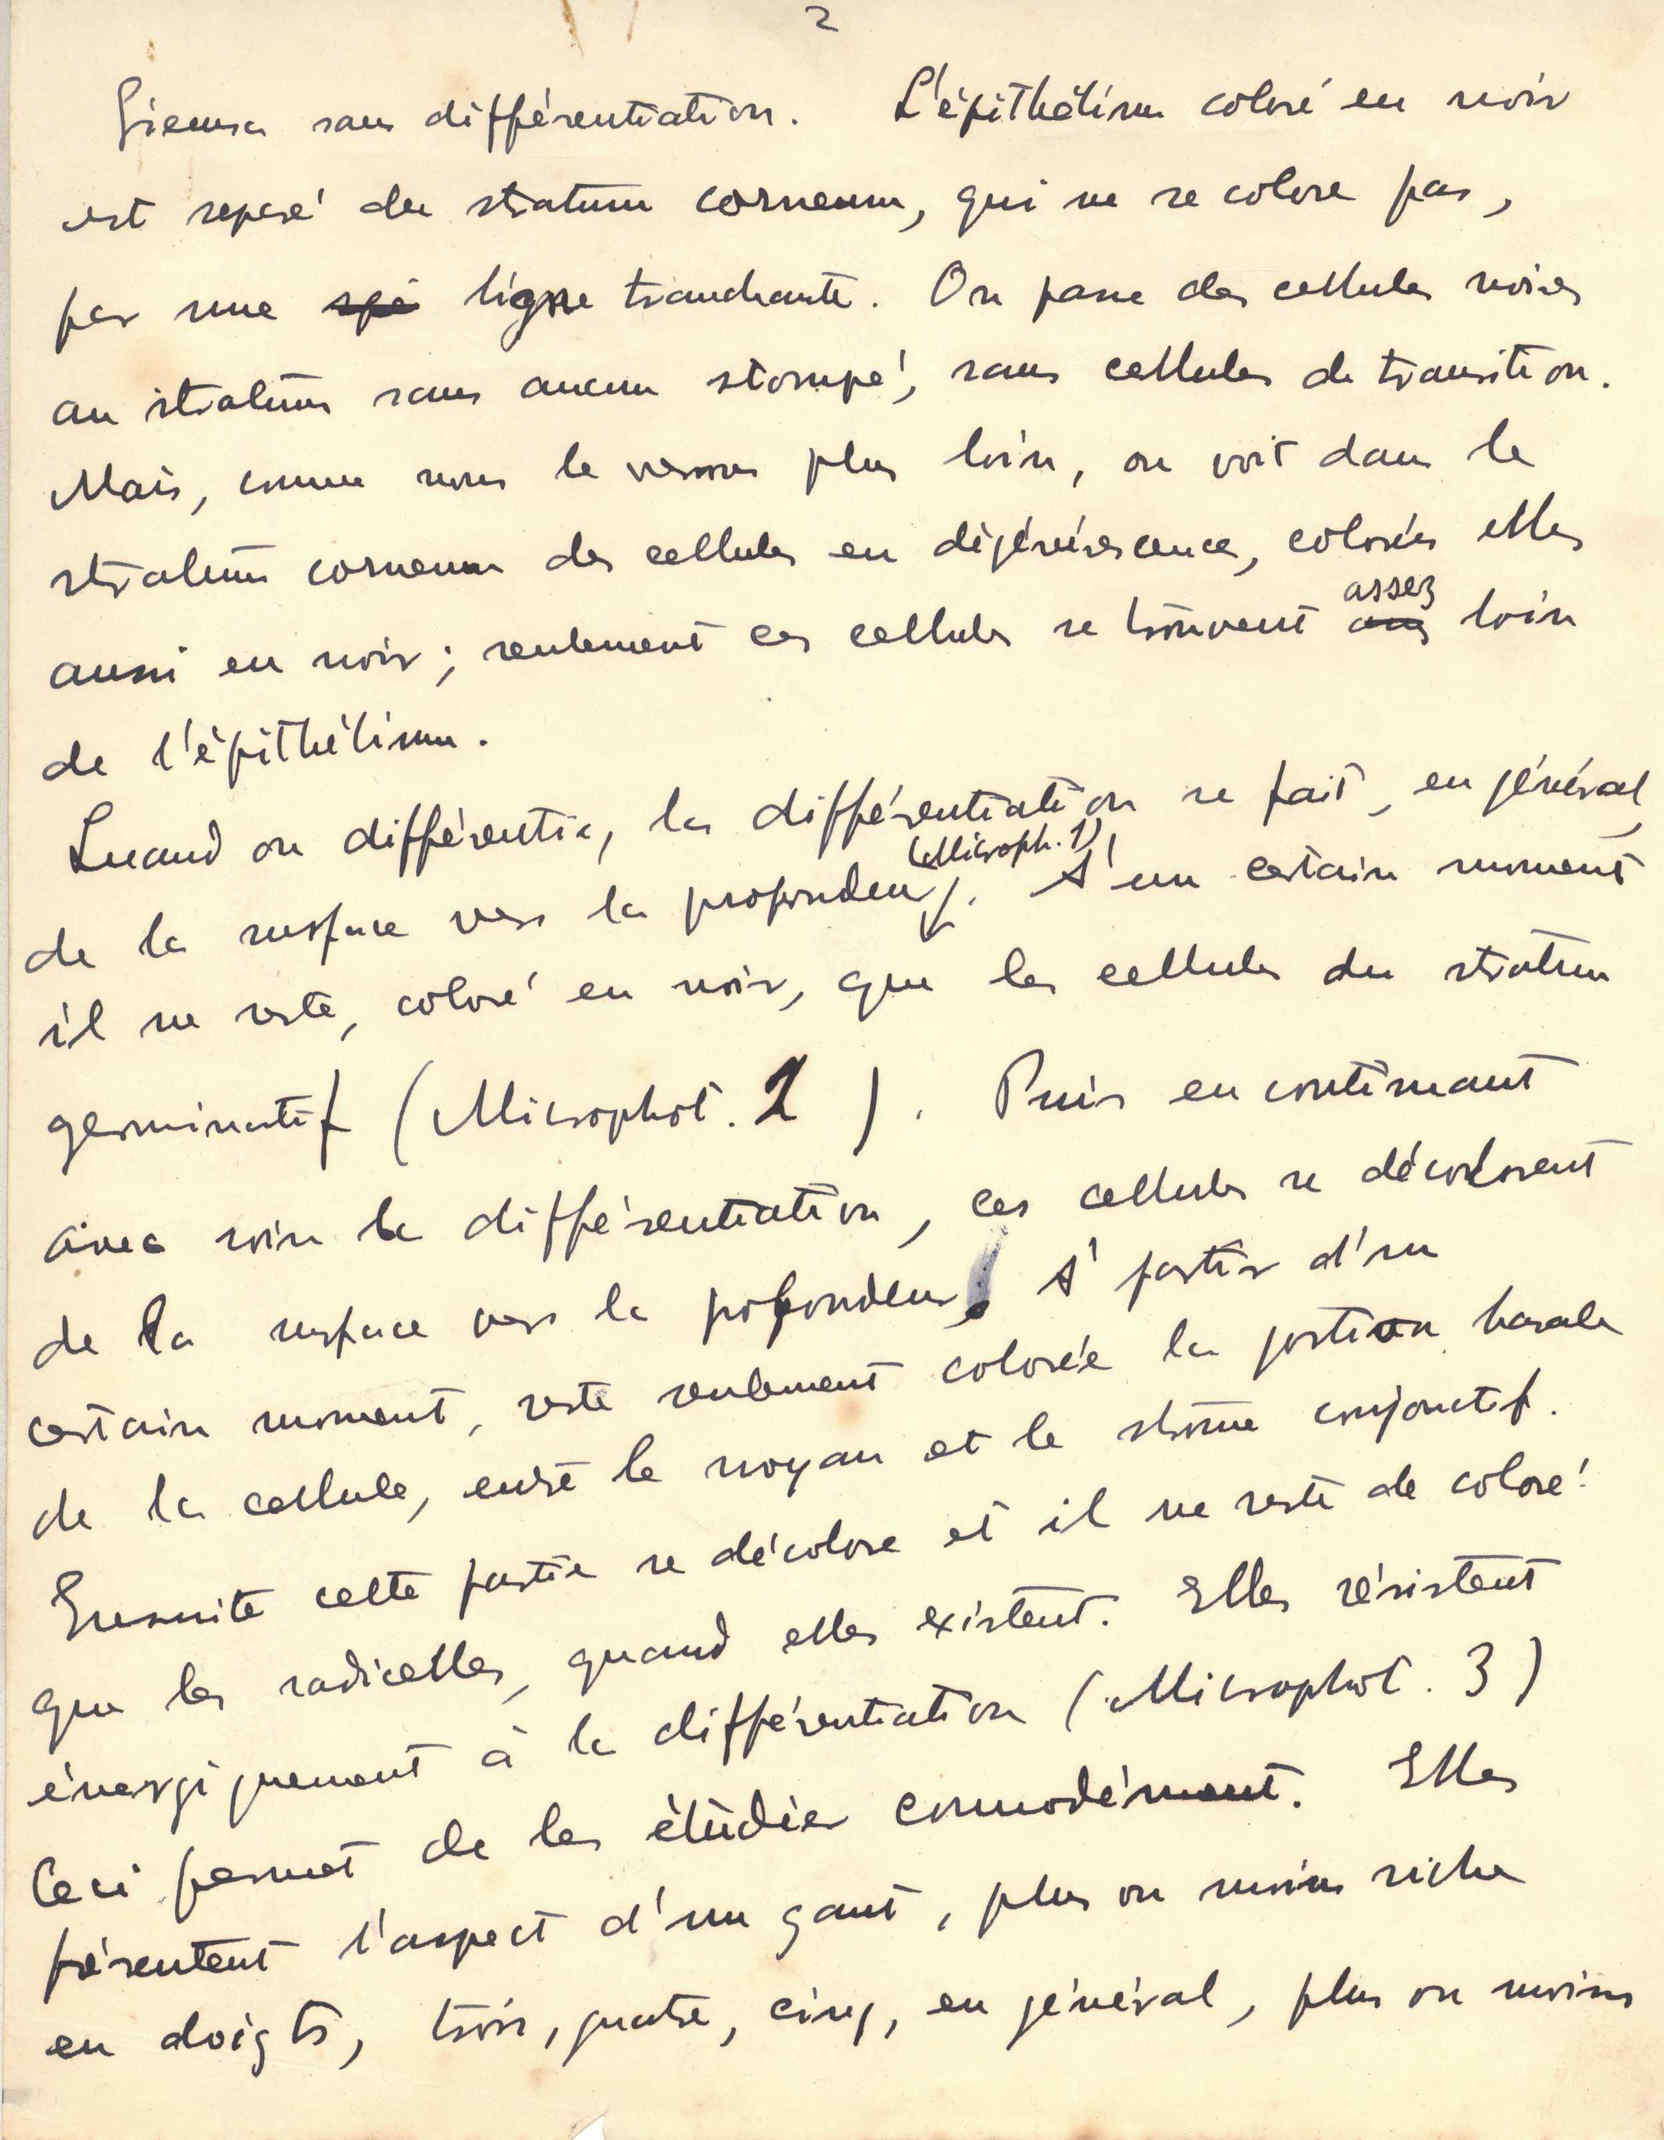 2
Giemsa sans différentiation. L'épithélium coloré en noir
est séparé du stratum corneum, qui ne se colore pas,
par une ligne tranchante. On passe des cellules noires
au stratum sans aucun stompé, sans cellules de transition.
Mais, comme nous le verrons plus loin, on voit dans le
stratum corneum des cellules en dégénérescence, colorées elles
aussi en noir; seulement ces cellules se trouvent assez loin
de l'épithélium.
Quand on différentie, la différentiation se fait, en général,
de la surface vers la profondeur (Microph. 1). A un certain moment
il ne reste, coloré en noir, que les cellules du stratum
germinatif (Microphot. 2). Puis en continuant
avec soin la différentiation, ces cellules se décolorent
de la surface vers la profondeur. A partir d'un
certain moment, reste seulement colorée la portion basale
de la cellule, entre le noyau et le stroma conjonctif.
Ensuite cette partie se décolore et il ne reste de coloré
que les radicelles, quand elles existent. Elles résistent
énergiquement à la différentiation (Microphot. 3)
Ceci permet de les étudier commodément. Elles
présentent l'aspect d'un gant, plus ou moins riche
en doigts, trois, quatre, cinq, en général, plus ou moins